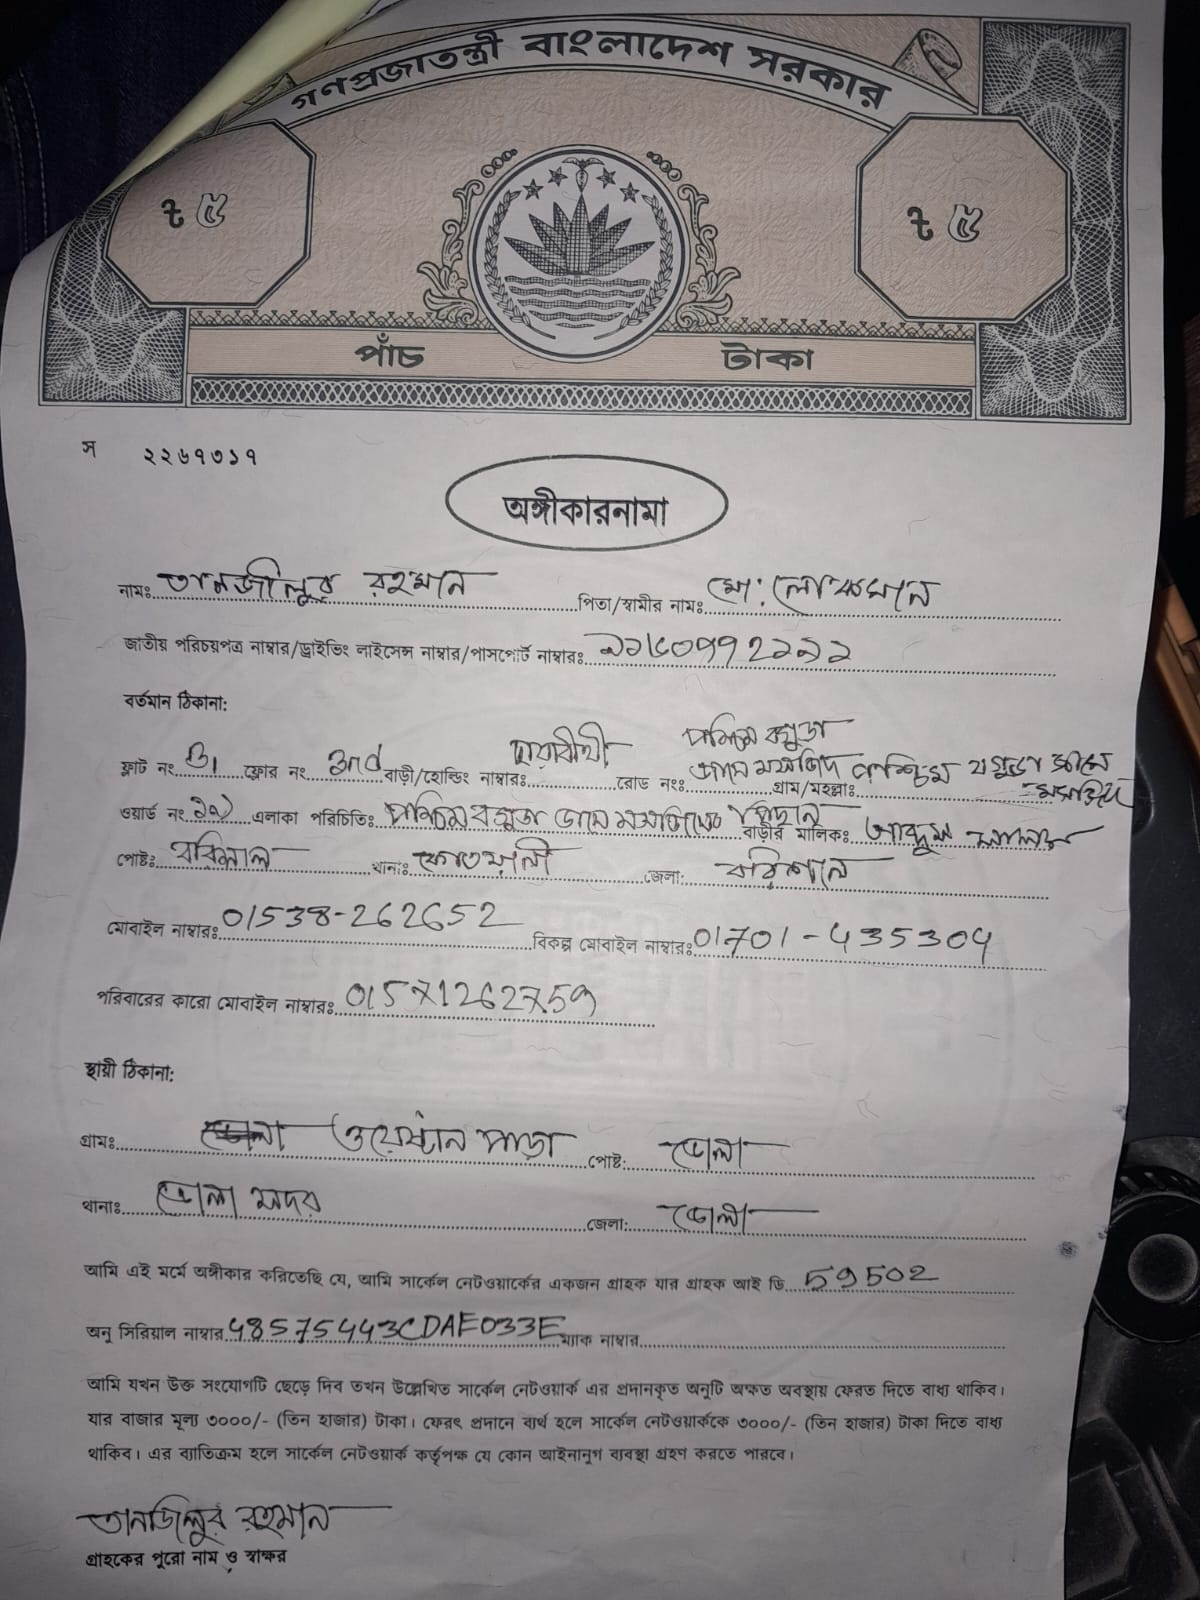 গণপ্রজাতন্ত্রী বাংলাদেশ সরকার
৳ ৫ ৳ ৫
পাঁচ টাকা
স ২২৬৭৩১৭
অঙ্গীকারনামা
নামঃ তানজীলুর রহমান পিতা/স্বামীর নামঃ মো: লোকমান
জাতীয় পরিচয়পত্র নাম্বার/ড্রাইভিং লাইসেন্স নাম্বার/পাসপোর্ট নাম্বারঃ
বর্তমান ঠিকানা:
ফ্লাট নং B1 ফ্লোর নং 3nd বাড়ী/হোল্ডিং নাম্বারঃ রোড নংঃ পশ্চিম বগুড়া জামে মসজিদ গ্রাম/মহল্লাঃ পশ্চিম বগুড়া জামে মসজিদ
ওয়ার্ড নং এলাকা পরিচিতিঃ পশ্চিম বগুড়া জামে মসজিদের পিছনে বাড়ীর মালিকঃ আব্দুস সালাম
পোষ্টঃ বরিশাল থানাঃ কোতয়ালী জেলা: বরিশাল
মোবাইল নাম্বারঃ 01538-262652 বিকল্প মোবাইল নাম্বারঃ 01701-435304
পরিবারের কারো মোবাইল নাম্বারঃ 01571262759
স্থায়ী ঠিকানা:
গ্রামঃ ওয়েষ্টান পাড়া পোষ্ট: ভোলা
থানাঃ ভোলা সদর জেলা: ভোলা
আমি এই মর্মে অঙ্গীকার করিতেছি যে, আমি সার্কেল নেটওয়ার্কের একজন গ্রাহক যার গ্রাহক আই ডি 59502
অনু সিরিয়াল নাম্বার 48575443CDAE033E ম্যাক নাম্বার
আমি যখন উক্ত সংযোগটি ছেড়ে দিব তখন উল্লেখিত সার্কেল নেটওয়ার্ক এর প্রদানকৃত অনুটি অক্ষত অবস্থায় ফেরত দিতে বাধ্য থাকিব।
যার বাজার মূল্য ৩০০০/- (তিন হাজার) টাকা। ফেরৎ প্রদানে ব্যর্থ হলে সার্কেল নেটওয়ার্ককে ৩০০০/- (তিন হাজার) টাকা দিতে বাধ্য
থাকিব। এর ব্যাতিক্রম হলে সার্কেল নেটওয়ার্ক কর্তৃপক্ষ যে কোন আইনানুগ ব্যবস্থা গ্রহণ করতে পারবে।
তানজিলুর রহমান
গ্রাহকের পুরো নাম ও স্বাক্ষর